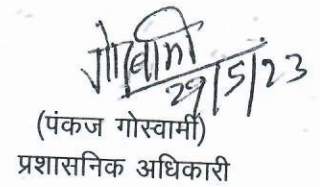 गोस्वामी
29/5/23
(पंकज गोस्वामी)
प्रशासनिक अधिकारी